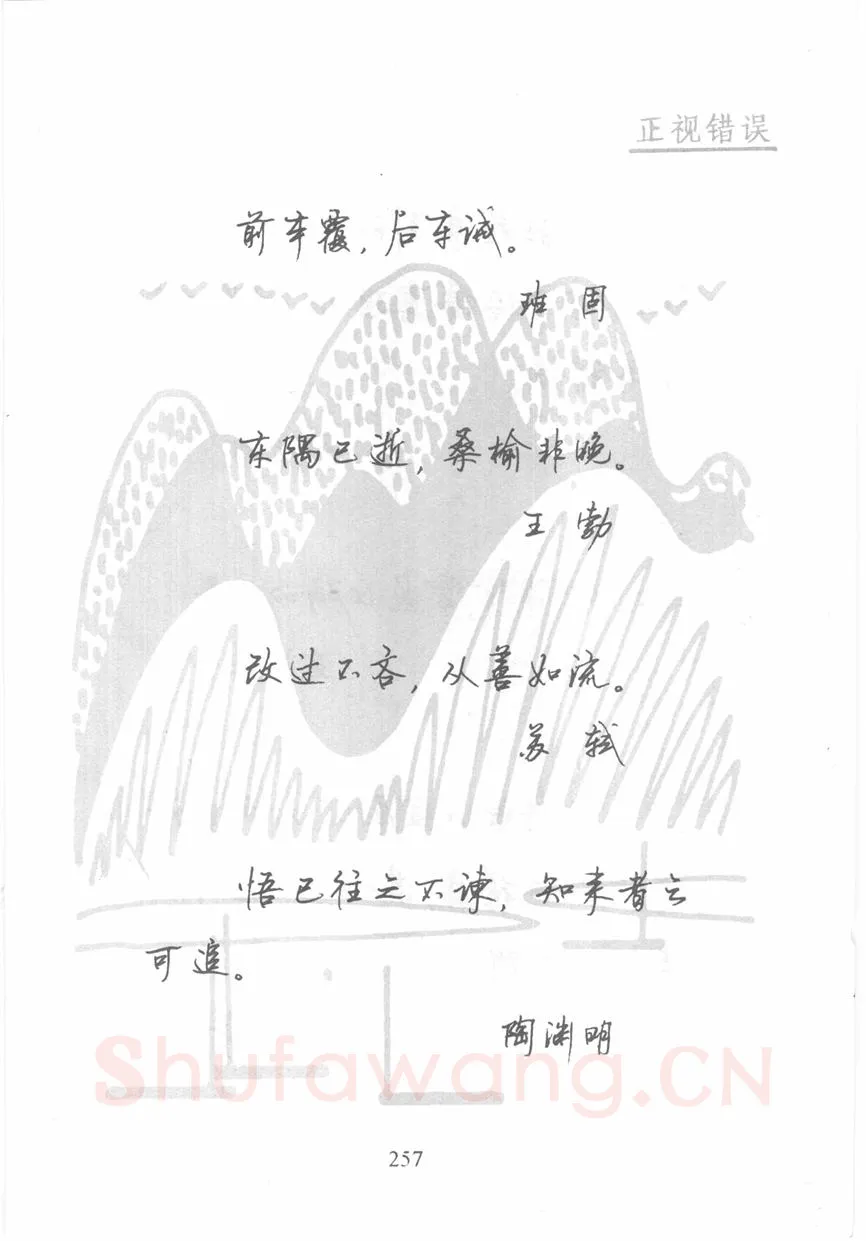 正视错误
前车覆，后车诫。
班 固
东隅已逝，桑榆非晚。
王 勃
改过不吝，从善如流。
苏 轼
悟已往之不谏，知来者之
可追。
陶渊明
Shufawang.CN
257